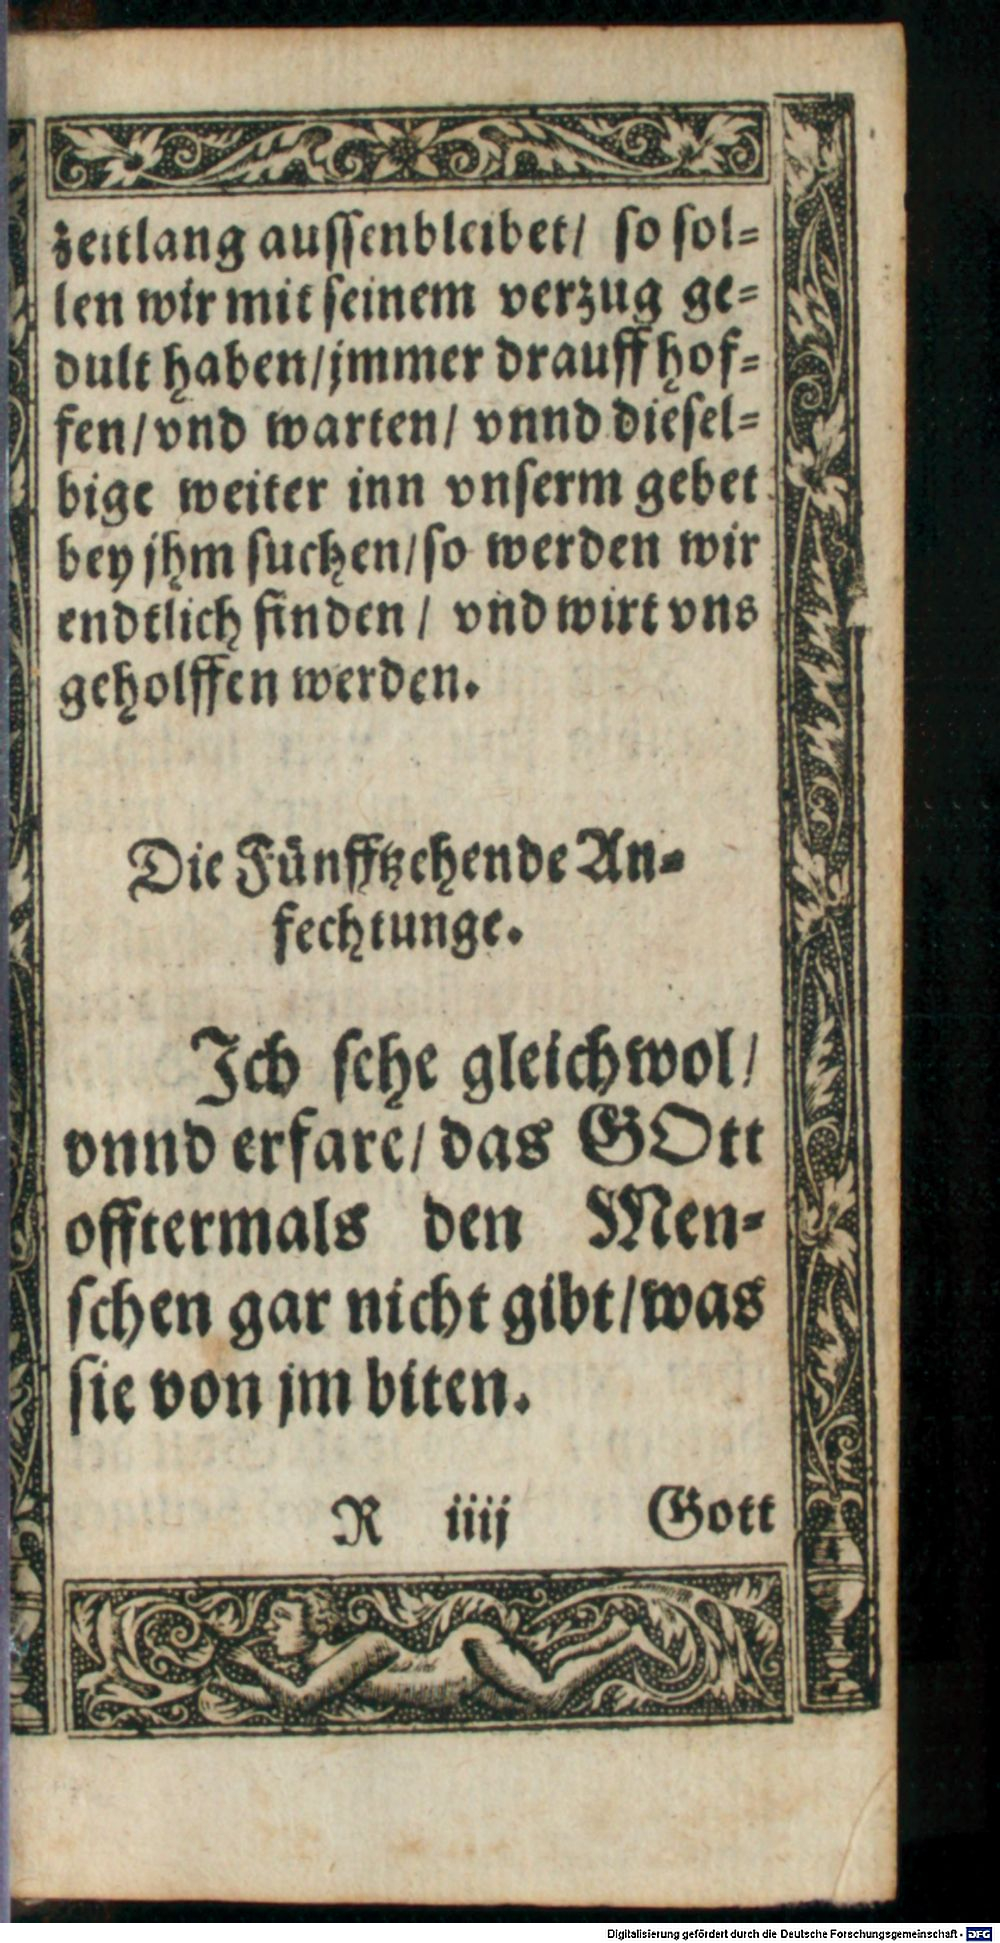 zeitlang aussenbleibet/ so sol-
len wir mit seinem verzug ge-
dult haben/jmmer drauff hof-
fen/vnd warten/ vnnd diesel-
bige weiter inn vnserm gebet
bey jhm suchen/so werden wir
endtlich finden/ vnd wirt vns
geholffen werden.
Die Fünfftzehende An-
fechtunge.
Ich sehe gleichwol/
vnnd erfare/ das GOtt
offtermals den Men-
schen gar nicht gibt/was
sie von jm biten.
R iiij Gott
Digitalisierung gefördert durch die Deutsche Forschungsgemeinschaft - DFG